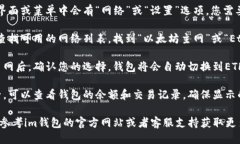 界面或菜单中会有"网络"或"设置"选项,您需要
的网络列表,找到"以太坊主网"或"Et
网后,确认您的选择,钱包将会自动切换到ETH
,可以查看钱包的余额和交易记录,确保显示的
参考im钱包的官方网站或者客服支持获取更